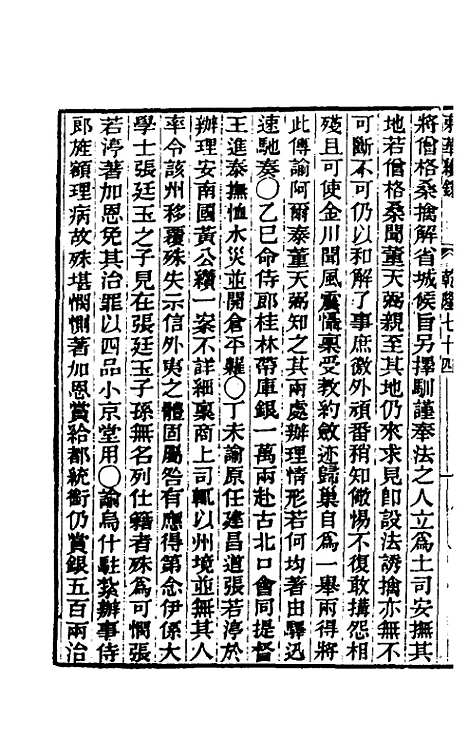 乾隆七十四
將僧格桑擒解省城候旨另擇馴謹奉法之人立爲土司安撫其
地若僧格桑聞董天弼親至其地仍來求見卽設法誘擒亦無不
可斷不可仍以和解了事庶徼外頑番稍知儆惕不復敢攓怨相
殘且可使金川聞風震懾稟受敎約斂迹歸巢自爲一舉兩得將
此傳諭阿爾泰董天弼知之其兩處辦理情形若何均著由驛迅
速馳奏〇乙巳命侍郎桂林帶庫銀一萬兩赴古北口會同提督
王進泰撫恤水災並開倉平糶〇丁未諭原任建昌道張若渟於
辦理安南國黃公纘一案不詳細稟商上司輒以州境並無其人
率令該州移覆殊失示信外夷之體固屬咎有應得第念伊係大
學士張廷玉之子見在張廷玉子孫無名列仕籍者殊爲可憫張
若渟著加恩免其治罪以四品小京堂用〇諭烏什駐紮辦事侍
郎旌額理病故殊堪憫惻著加恩賞給都統銜仍賞銀五百兩治